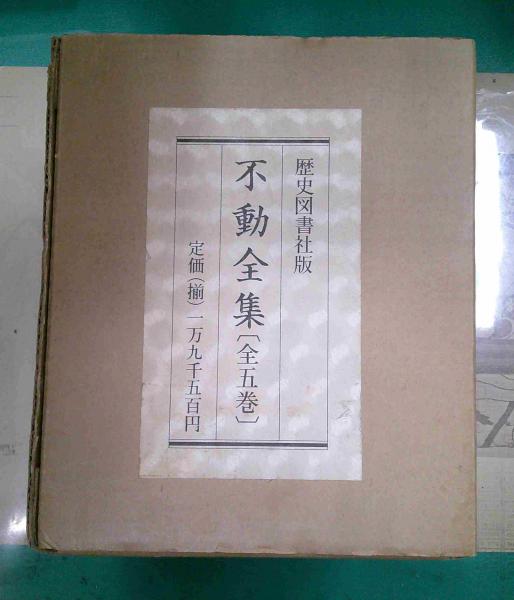 歴史図書社版
不動全集〔全五巻〕
定価（揃）一万九千五百円